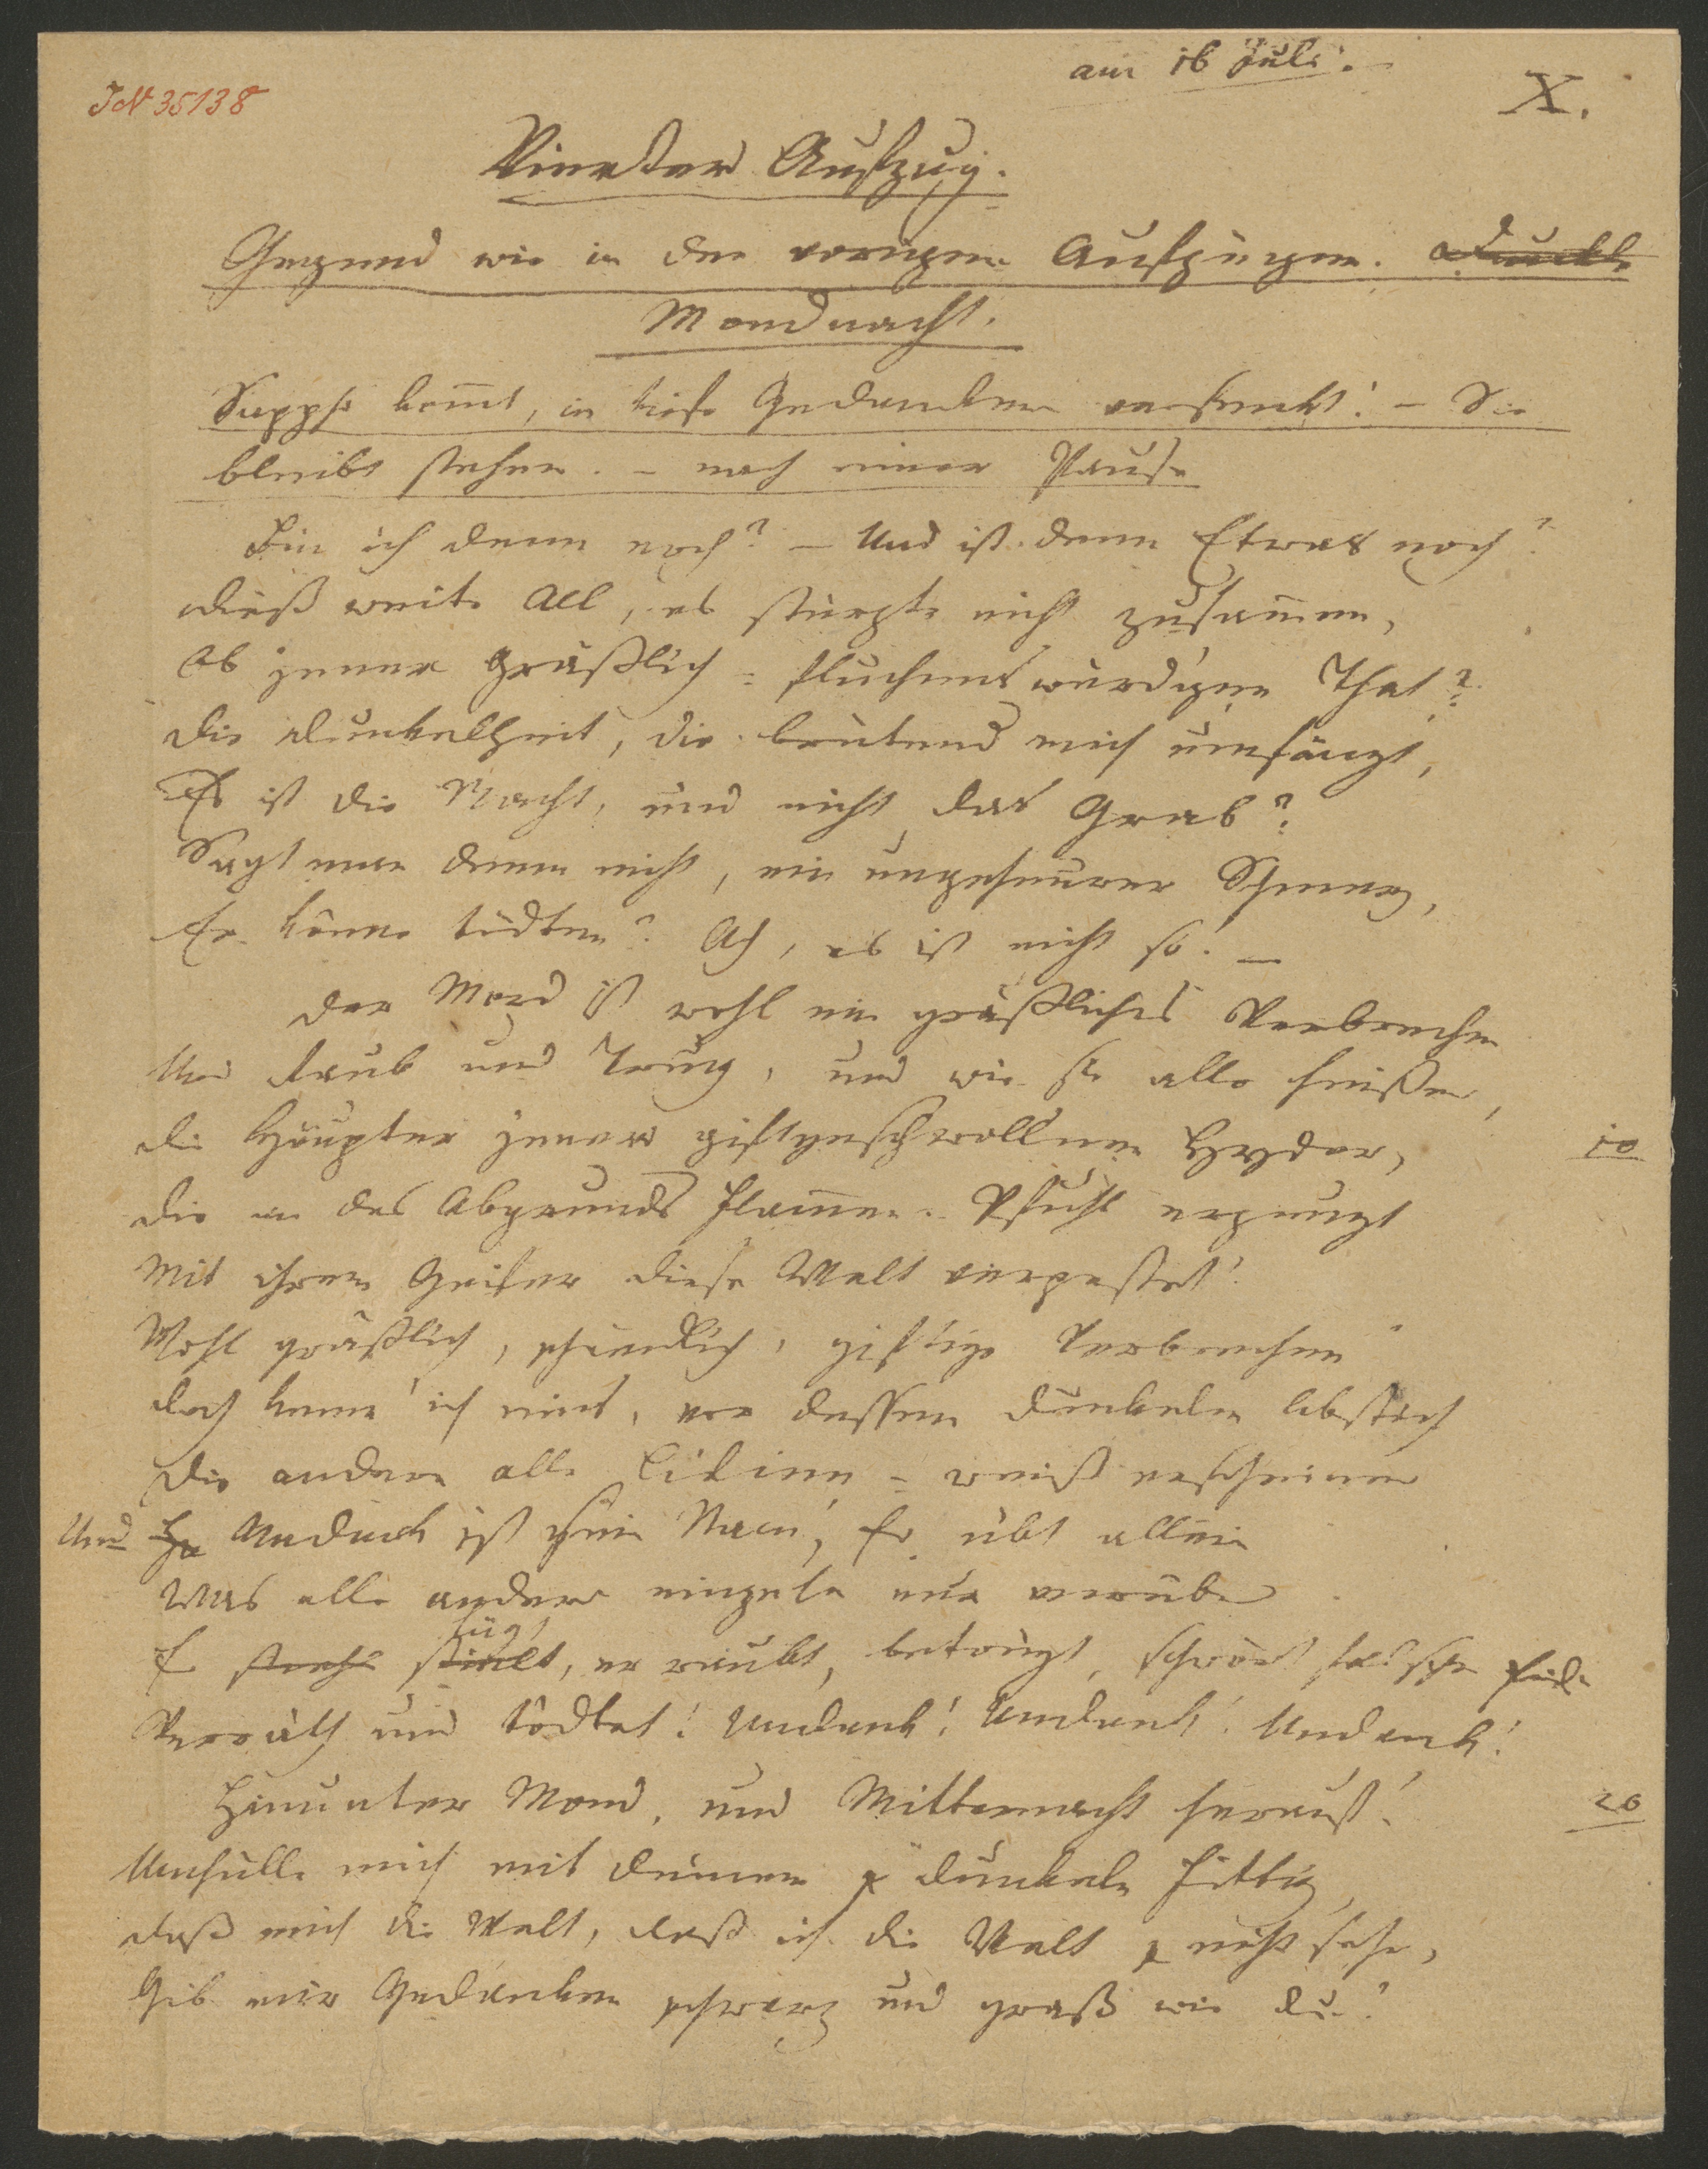 am 16 Juli. –
X.
JN 35138
Vierter Aufzug.
Gegend wie in den vorigen Aufzügen. Dunkle
Mondnacht.
Sappho kom̄t, in tiefe Gedanken versenkt! – Sie
bleibt stehen. – nach einer Pause
Bin ich denn noch? – Und ist denn Etwas noch?
Dieß weite All, es stürzte nicht zusam̄en,
Ob jener gräßlich-fluchenswürdigen That?
Die Dunkelheit, die brütend mich umfängt,
Es ist die Nacht, und nicht das Grab?
Sagt man denn nicht, ein ungeheurer Schmerz,
Er könne tödten? Ach, es ist nicht so! –
Der Mord ist wohl ein gräßliches Verbrechen
Und Raub und Trug, und wie sie alle heißen,
Die Häupter jener giftgeschwollnen Hyder,
10
Die in des Abgrunds Flam̄en-Pfuhl erzeugt
Mit ihrem Geifer diese Welt verpestet!
Wohl gräßlich, schändlich, giftige Verbrechen
Doch kenn' ich eins, vor dessen dunkeln Abstich
Die andern alle Lilien-weiß erscheinen
Und Ha Undank ist sein Nam'! Er übt allein
Was alle andern einzeln nur verüben
lügt
Er stiehlt, er raubt, betrügt, schwört falsche Eide
Verräth und tödtet! Undank! Undank! Undank!
Hinunter Mond, und Mitternacht heraus!
20
Umhülle mich mit deinem dunkeln Fittig,
Daß mich die Welt, daß ich die Welt nicht sehe,
Gib mir Gedanken schwarz und graß wie du!